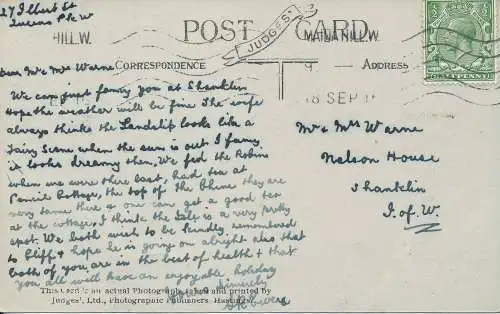 27 Ilbert St
Queens Pk W
POST CARD
JUDGES'
HILL.W.
MAIDA HILL.W.
CORRESPONDENCE
ADDRESS
HALFPENNY
18 SEP
Dear Mr & Mrs Warne
We can just fancy you at Shanklin
Hope the weather will be fine The wife
always thinks the Landslip looks like a
Fairy Scene when the sun is out I fancy
it looks dreamy then, We fed the Robins
when we were there last, had tea at
Pencil Cottage, the top of the Chine they are
very tame there & one can get a good tea
at the cottage, I think the Isle is a very pretty
spot. We both wish to be kindly remembered
to Cliff & hope he is going on alright also that
both of you are in the best of health & that
you all will have an enjoyable holiday
Yours sincerely
Mr & Mrs Warne
Nelson House
Shanklin
I. of. W.
This Card is an actual Photograph, taken and printed by
Judges', Ltd., Photographic Publishers Hastings